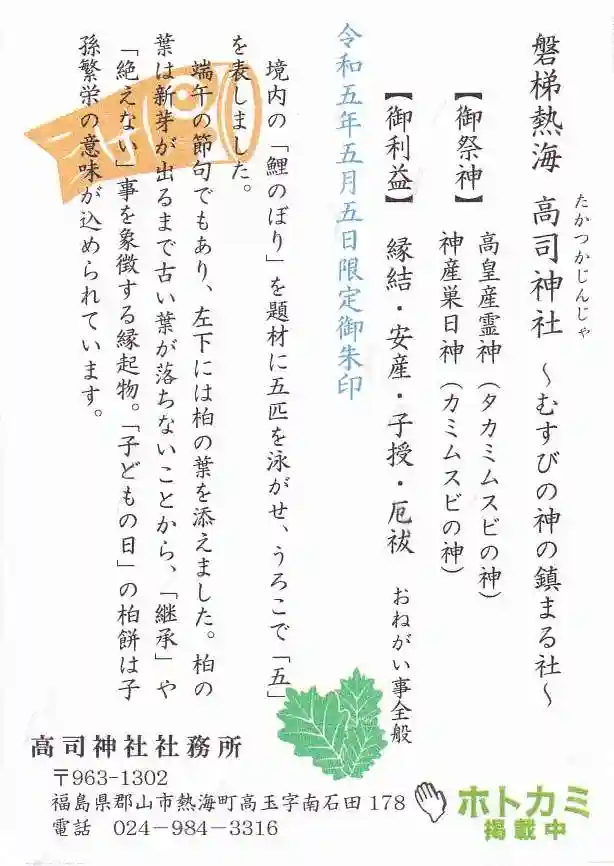 磐梯熱海 高司神社 ～むすびの神の鎮まる社～
たかつかじんじゃ
【御祭神】 高皇産霊神（タカミムスビの神）
神産巣日神（カミムスビの神）
【御利益】 縁結・安産・子授・厄祓 おねがい事全般
令和五年五月五日限定御朱印
境内の「鯉のぼり」を題材に五匹を泳がせ、うろこで「五」
を表しました。
端午の節句でもあり、左下には柏の葉を添えました。柏の
葉は新芽が出るまで古い葉が落ちないことから、「継承」や
「絶えない」事を象徴する縁起物。「子どもの日」の柏餅は子
孫繁栄の意味が込められています。
高司神社社務所
〒963-1302
福島県郡山市熱海町高玉字南石田 178
電話 024-984-3316
ホトカミ
掲載中